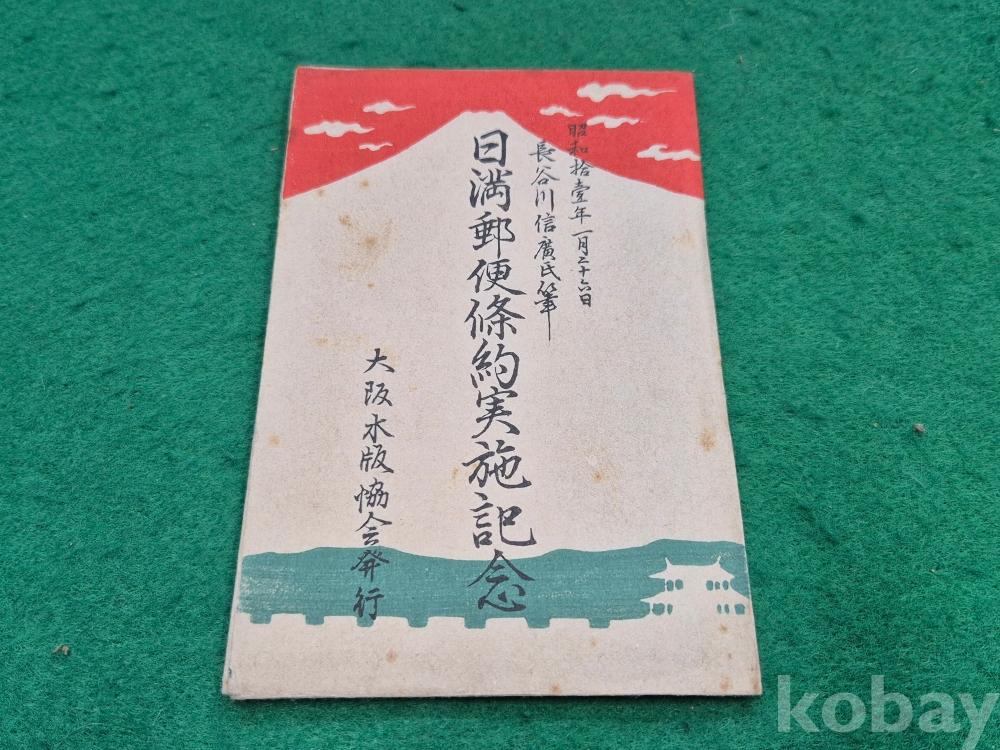 昭和拾壹年一月二十六日
長谷川信廣氏筆
日満郵便條約実施記念
大阪木版協会発行
kobay